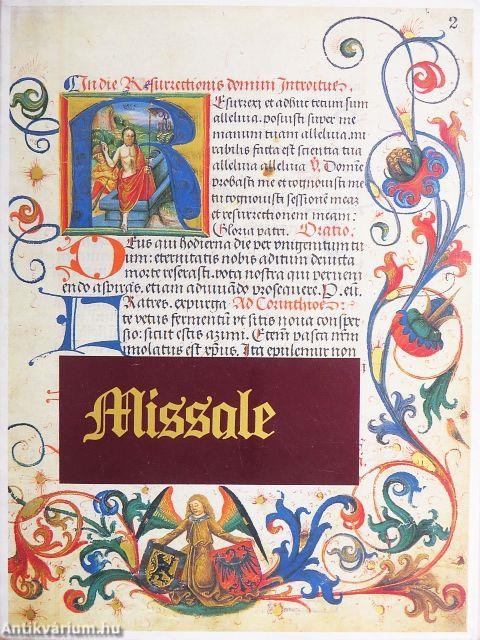 2
In die Resurrectionis domini Introitus
Resurrexi et adhuc tecum sum
alleluia. posuisti super me
manum tuam alleluia. mi
rabilis facta est scientia tua
alleluia alleluia V. Domine
probasti me et cognouisti me
tu cognouisti sessionē meaʒ
et resurrectionem meam:
Gloria patri. Oratio.
Deus qui hodierna die per vnigenitum tu
um: eternitatis nobis aditum deuicta
morte reserasti. vota nostra que preueni
endo aspiras, etiam adiuuando prosequere. P. eū.
Fratres. expurga Ad Corinthios:
te vetus fermentū vt sitis noua consper
sio: sicut estis azimi. Etem̄ pasca nr̄m
immolatus est xp̄us. Ita epulemur non
Missale
Antikvárium.hu